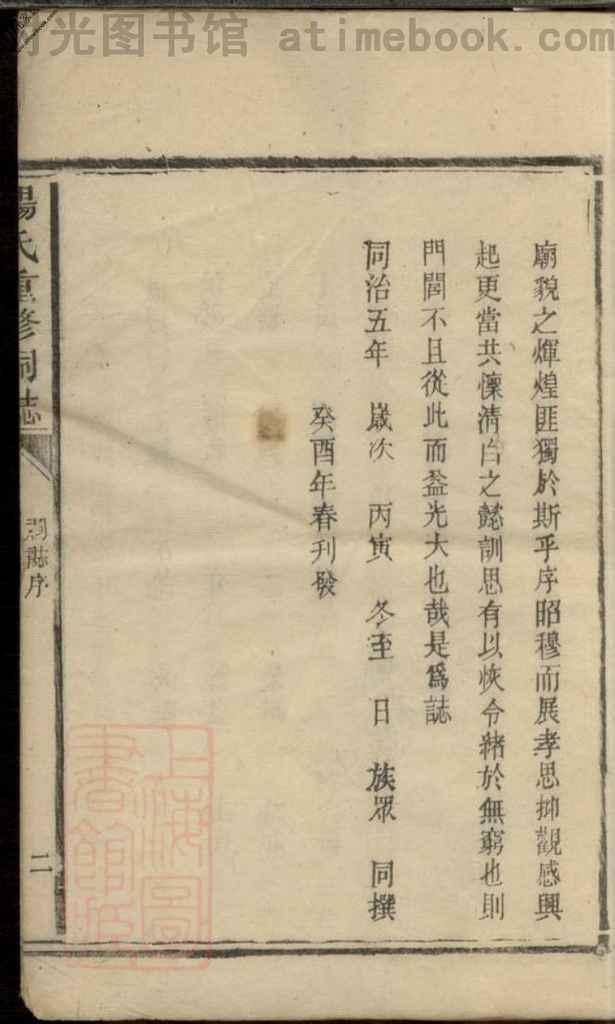 时光图书馆 atimebook.com
廟貌之煇煌匪獨於斯乎序昭穆而展孝思抑觀感興
起更當共懔清白之懿訓思有以恢令緒於無窮也則
門閭不且從此而益光大也哉是爲誌
同治五年 歲次 丙寅 冬至 日 族眾 同撰
癸酉年春刊發
楊氏重修祠誌
祠誌序
二
上海圖
書館藏